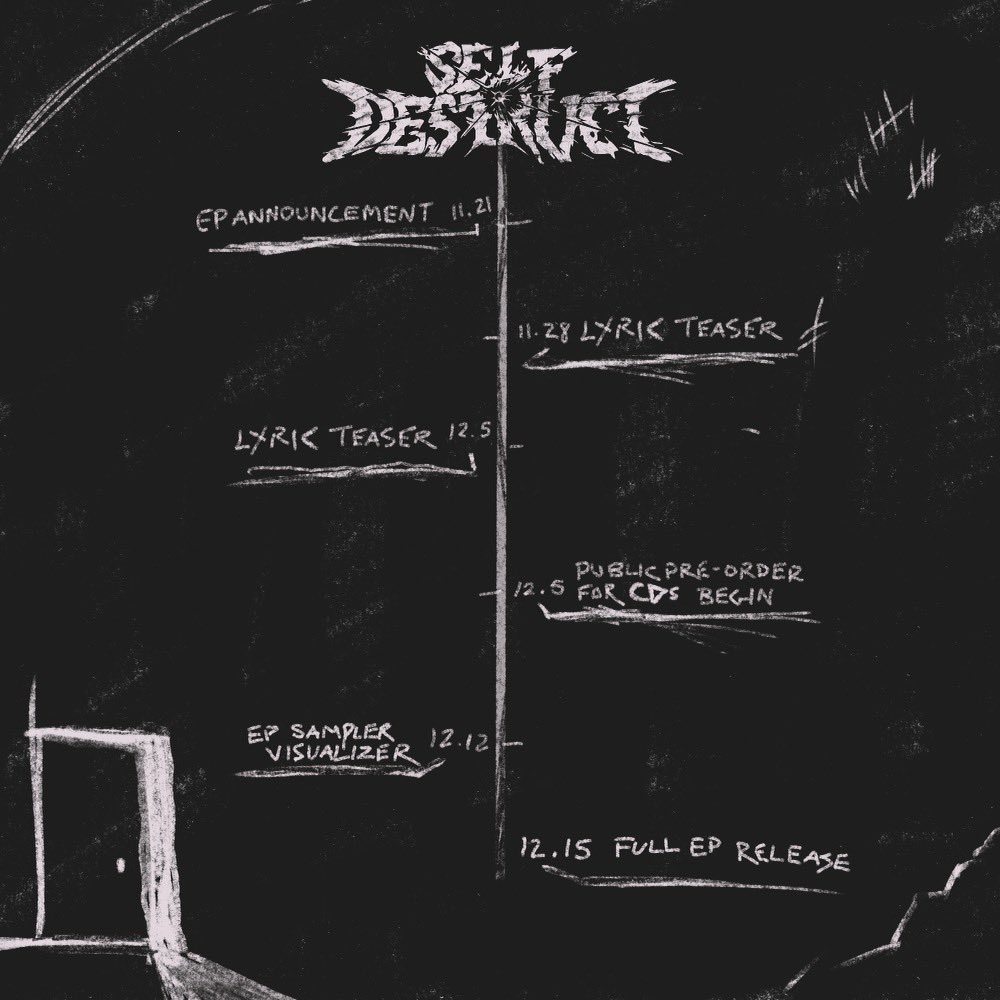 SELF
DESTRUCT
EP ANNOUNCEMENT 11.21
11.28 LYRIC TEASER
LYRIC TEASER 12.5
PUBLIC PRE-ORDER
12.5 FOR CDs BEGIN
EP SAMPLER
VISUALIZER 12.12
12.15 FULL EP RELEASE